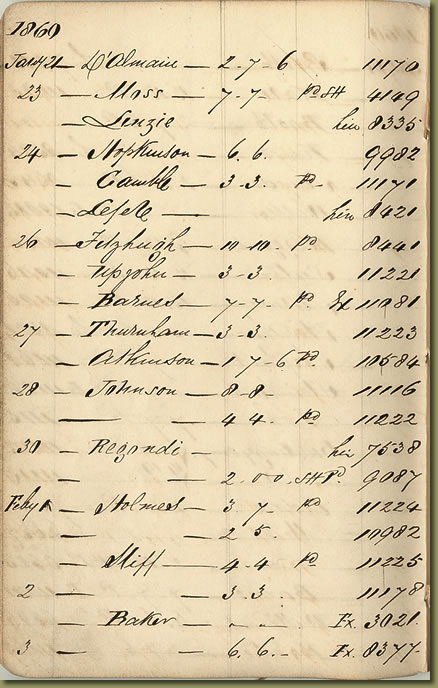 1860
Jany 21 — D'Almaine — 2 - 7 - 6 11170
23 — Moss — 7 - 7 - Pd SH 4149
— Linzie hire 8335
24 — Hopkinson — 6. 6. 9982
— Gamble — 3 - 3. Pd - 11171
— — hire 8421
26 — Fitzhugh — 10 - 10. Pd 8441
— Upjohn — 3 - 3. 11221
— Barnes — 7 - 7 - Pd Ex 11081
27 — Thurnham — 3 - 3. 11223
— Atkinson — 1 7 - 6 Pd 10584
28 — Johnson — 8 - 8 - 11116
— — 4 4. Pd 11222
30 — Regondi — hire 7538
— — 2. 0 0. SH Pd. 9087
Feby 1 — Holmes — 3 7 - Pd 11224
— — 2 5. 10982
— — 4 - 4 Pd 11225
2 — — 3. 3. 11178
— Baker — - - . Ex. 3021
3 — — 6. 6. - Ex. 8377